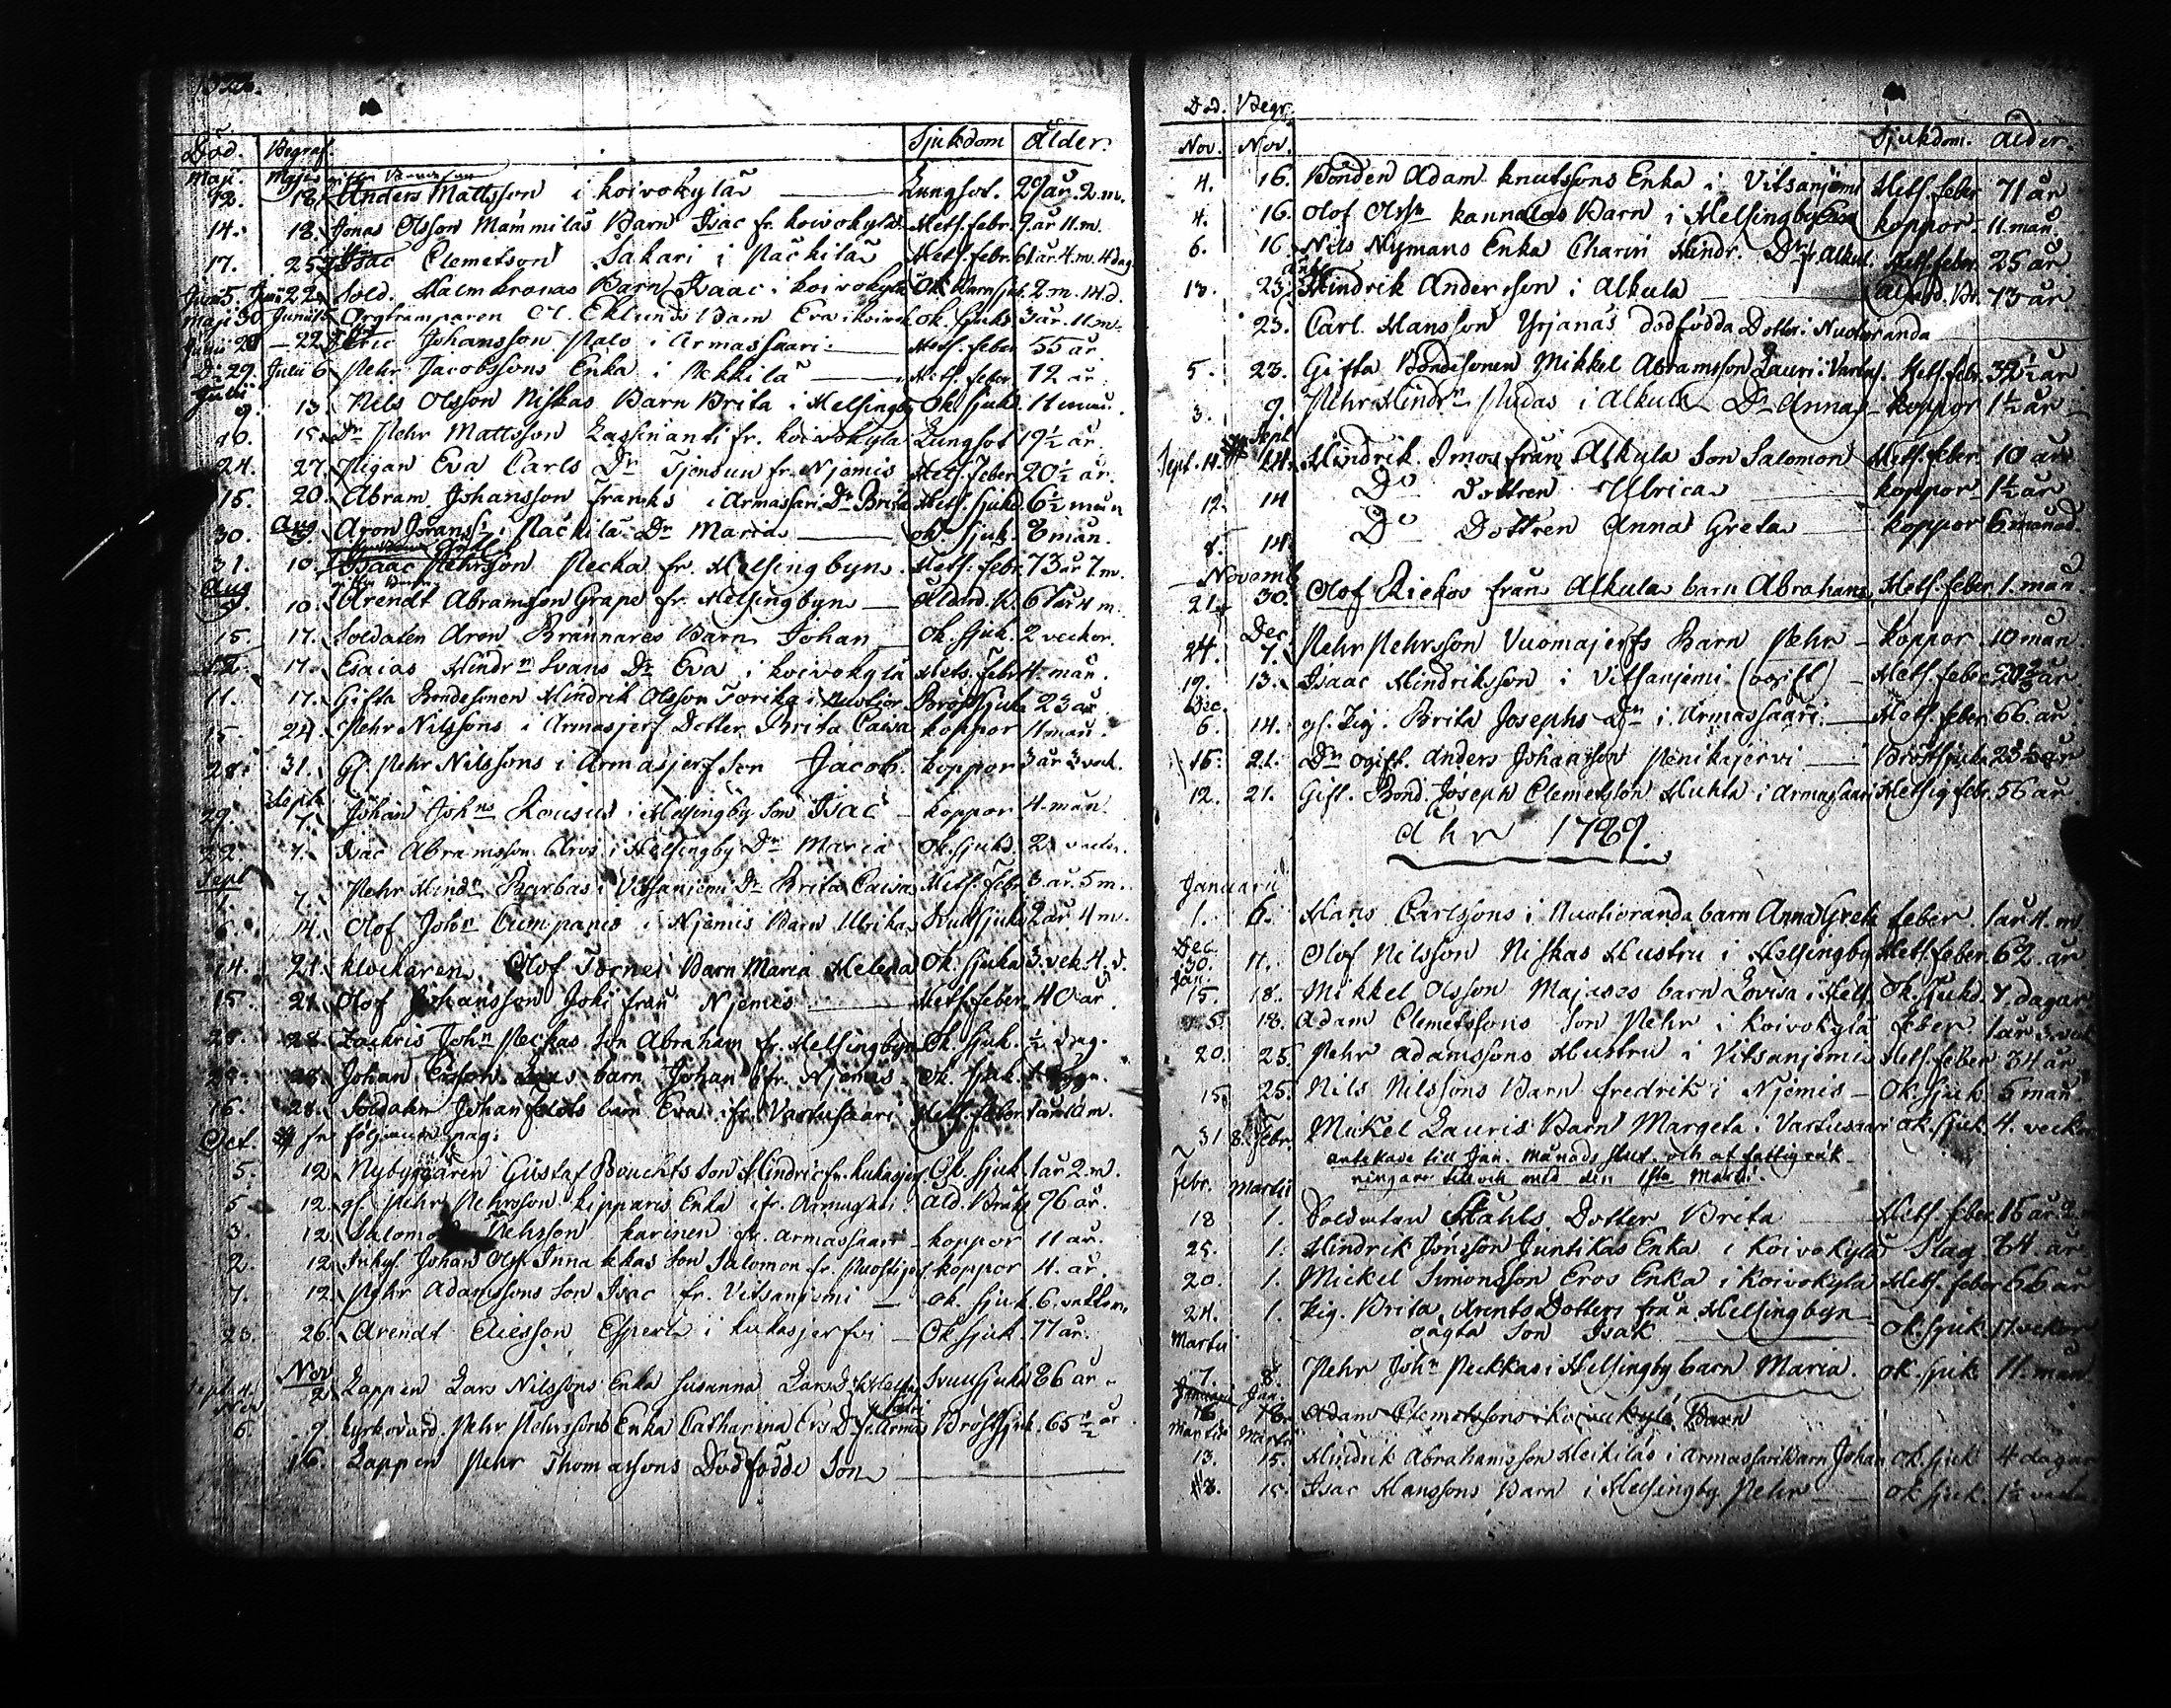 Död. Begraf. Sjukdom Ålder.
Maji Maji
12. 18. Anders Mattsson i koivokylä Lungsot. 29 år. 2. m.
14. 18. Jonas Olsson Mämmiläs Barn Isac fr. koivokylä Hets. febr. 9. år 11. m.
17. 25 Isac Clemetson Sakari i Päckilä Hets. febr. 61 år. 4. m. 4 dag.
Junii 5. Junii 22. Sold. Malmkronas Barn Isaac i koivokylä Ok. Barnsjuk. 2. m. 14. d.
Maji 30 Junii Orgtramparen Eklunds Barn Eva i koivok. Ok. sjuk. 3 år. 11. m.
Junii 20 – 22 Eric Johansson Palo i Armassaari Hets. feber 55 år.
D. 29. Julii 6 Pehr Jacobssons Enka i Pekkilä Hets. feber 72 år.
Julii
9. 13. Nils Olsson Niskas Barn Brita i Helsingby Ok. sjuk. 11 mån.
10. 15. Dr Pehr Mattsson Lassinanti fr. koivokyla Lungsot 19½ år.
24. 27. Pigan Eva Carls Dr fr. Njemis Hets. Feber 20½ år.
15. 20. Abram Johansson Franks i Armassari Dr Brita Hets. sjukd. 6½ mån
Aug
30. Aron Jöranss. i Päckilä Dr Maria ok. sjuk. 8 mån.
31. 10. Isaac Pehrsson Pecka fr. Helsingbyn. Hets. febr. 73 år 7. m.
Aug
5 10. Arendt Abramsson Grape fr. Helsingbyn Ålderd. 61 år 4 m.
15. 17. Soldaten Aron Brännares Barn Johan Ok. sjuk. 2 veckor.
12. 17. Esaias Hindrn Svans Dr Eva i koivokylä Hets. febr. 4. mån.
11. 17. Gifta Bondesonen Hindrik Olsson Torikka i Bröstsjuka 23 år
15 24. Pehr Nilssons i Armasjerf Dotter Brita Caisa koppor 11 mån.
28. 31. Gl Pehr Nilssons i Armasjerf Son Jacob. koppor 3 år 3 veck.
Septr
29. 7. Johan Johns Rousus i Helsingby Son Isac koppor 4. mån.
22 7. Isac Abramsson Arvs i Helsingby Dr Maria Ok. sjukd. 2½ veckor.
Sept
1. 7. Pehr Hindrn Barbas i Vitsanjemi Dr Brita Caisa Hets. febr. 3. år. 5 m.
6. 14. Olof Johsn Cumpanes i Njemis Barn Ulrika Svullsjuk 2 år. 4 m.
14. 21. klockaren Olof Törnes Barn Maria Helena Ok. sjuka 3. vek. 4. d.
15. 21. Olof Johansson Joki från Njemis Hets. feber 40 år.
28. 28. Zachris Johsn Peckas Son Abraham fr. Helsingbyn Ok. sjuk. ½ dag.
28. Johan barn Johan fr. Njemis Ok. sjuk.
16. 28. Soldaten Johan barn Eva fr. Vartusaari Hets. feber 1 år 10 m.
Oct. följande pag:
5. 12 Nybyggaren Gustaf Bouchts Son Hindric fr. kukasjerf Ok. sjuk. 1 år 2. m.
5 12. gl. Pehr Pehrsson kipparis Enka Åld. Bräk. 96 år.
3. 12. Salomo Pehrsson karinen fr. armassaari koppor 11 år.
2. 12. Inhys. Johan Olss. Innakkas Son Salomon fr. koppor 4. år.
7. 12. Pehr Adamssons Son Isac fr. Vitsanjemi ok. sjuk. 6. veckor.
23. 26. Arendt Ericsson Esperla i kukasjerfvi Ok. sjuk 77 år.
Nov
Sept. 4. 2. Lappen Lars Nilssons Enka Susanna Lars Dr Svullsjuka 86 år.
Nov
6. 9. kyrkovärd. Pehr Pehrssons Enka Catharina Ers Dr fr. Arma Bröstsjuk. 65½ år
16. Lappen Pehr Thomassons Dödfödde Son
Död. Begr.
Nov. Nov. Sjukdom. Ålder.
4. 16. Bonden Adam Knutssons Enka i Vitsanjemi Hets. feber 71 år
4. 16. Olof Olssn kannalas Barn i Helsingby koppor. 11 mån.
6. 16 Nils Nymans Enka Charin Hindr. Dr fr. Alkul. Hets. feber 25 år
13. 23. Hindrik Andersson i Alkula Ålderd. Br. 73 år
23. Carl Hansson Yrjänäs dödfödda Dotter i Nuotioranda
5. 23. Gifta Bondesonen Mikkel Abramsson Lauri i Vartus. Hets. febr. 32½ år
3. 9. Pehr Hindrn Pudas i Alkula Dr Anna koppor 1½ år
Sept
Sept. 11. 14. Hindrik Imos från Alkula Son Salomon Hets. feber. 10 år
12. 14 Do Dottren Ulrica koppor 1½ år
8. 14. Do Dottren Anna Greta koppor 6 månad.
Novemb
21. 30. Olof Riekos från Alkula barn Abraham Hets. feber. 1. mån.
Dec
24. 7. Pehr Pehrsson Vuomajerfs Barn Pehr koppor 10 mån
19. 13. Isaac Hindriksson i Vitsanjemi (ogift) Hets. feber
Dec.
6. 14. gl. Pig. Brita Josephs Drn i Armassaari Hets. feber. 66 år
15. 21. Drn ogift. Anders Johansson Penikajervi Bröstsjuka 23½ år
12. 21. Gift. Bond. Joseph Clemetsson Huhta i Armassaari Hetsig febr. 56 år
Åhr 1789.
Januarii
1. 6. Hans Carlssons i Nuotioranda barn Anna Greta feber 1 år 4. m
Dec.
30. 11. Olof Nilsson Niskas Hustru i Helsingby Hets. feber. 62. år
Jan.
15. 18. Mikkel Olsson Majases barn Lovisa i Hels. Ok. sjukd. 7. dagar
5. 18. Adam Clemetssons Son Pehr i koivokylä feber 1 år 3. veck
20. 25 Pehr Adamssons Hustru i Vitsanjemi Hets. feber 34 år
15. 25. Nils Nilssons Barn Fredrik i Njemis Ok. sjuk. 5 mån.
31 8. Febr. Mickel Lauris Barn Margeta i Vartusaari ok. sjuk. 4. veckor
till Jan. månads slut. och af fattigräk
ningar till och med den 1sta Martii.
Febr. Martii
18 1. Soldaten Ståhls Dotter Brita Hets. feber. 15 år 2. m
25. 1. Hindrik Jönsson Juntikas Enka i Koivokylä Slag 84. år
20. 1. Mickel Simonsson Eros Enka i Koivokylä Hets. feber 66 år
24. 1. Pig. Brita Arents Dotters från Helsingbyn
oägta Son Isak ok. sjuk. 17. veckor
Martii
7. 8. Pehr John Peckkas i Helsingby barn Maria. ok. sjuk. 11. mån
Januari Jan.
18. Adam Clemetssons i koivukylä Barn
Martii Martii
13. 15. Hindrik Abrahamsson Heikiläs i Armassari Barn Johan ok. sjuk. 4 dagar
13. 15. Isac Hanssons Barn i Helsingby Pehr ok. sjuk. 1½ vecka